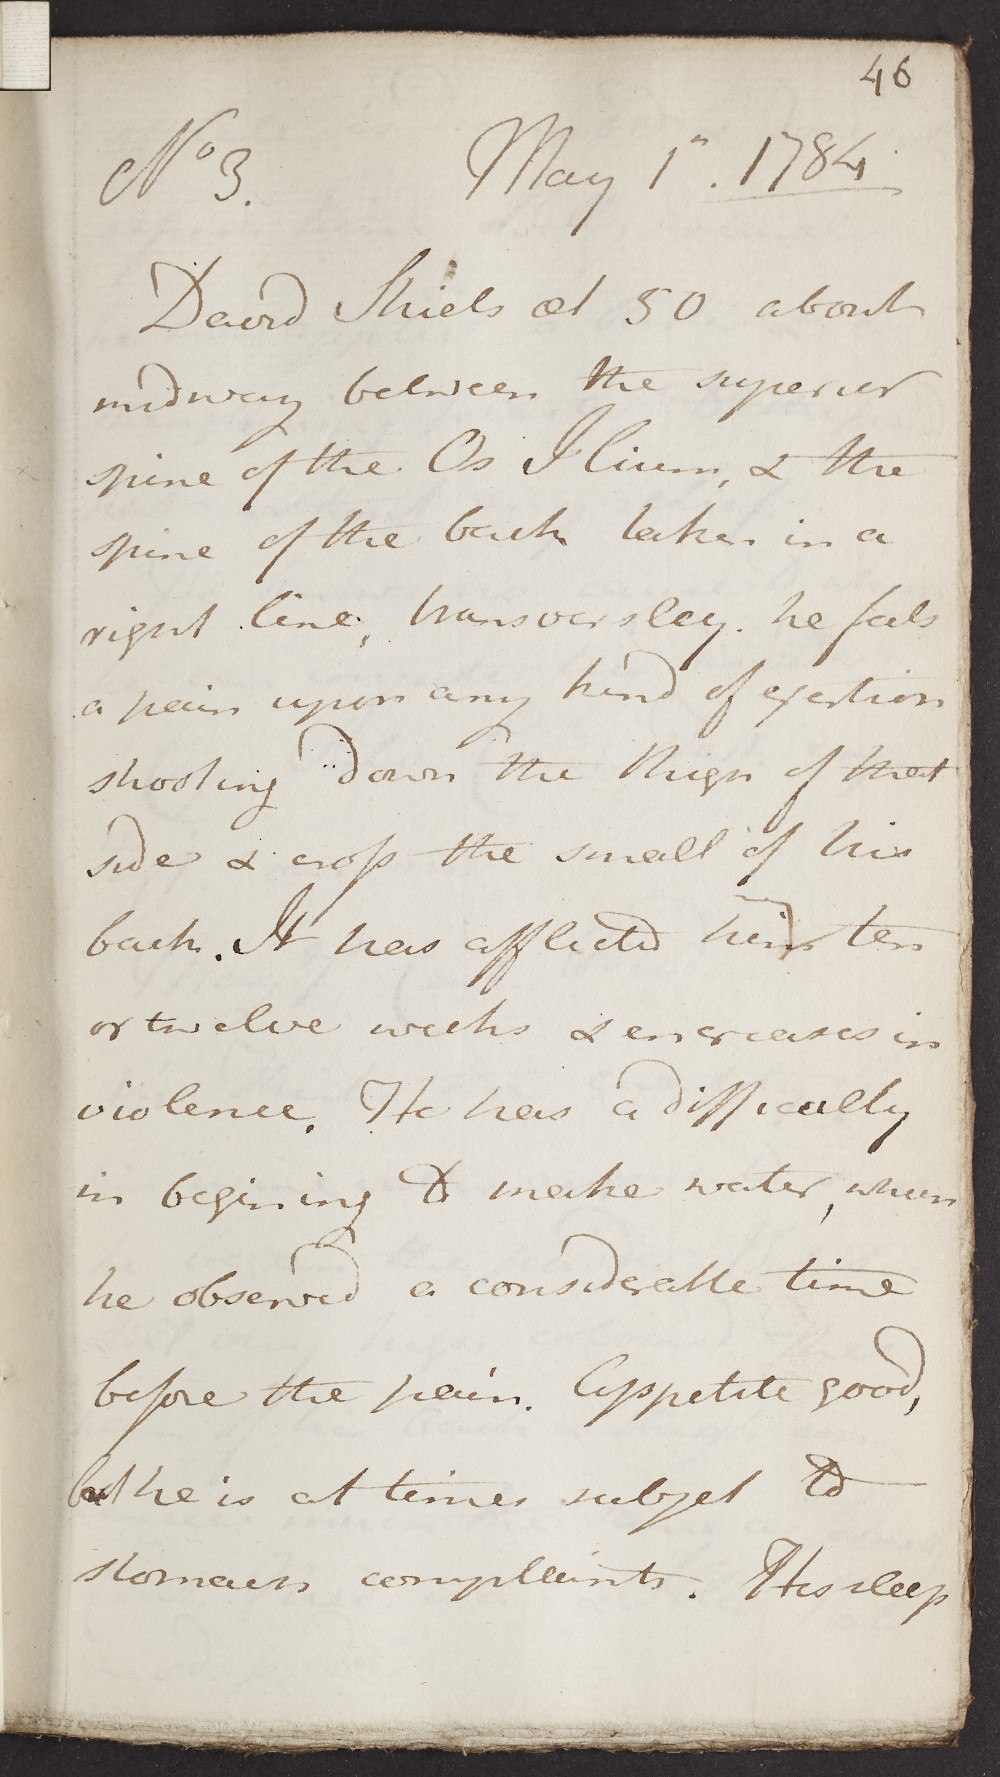 46
No 3. May 1st. 1784
David Shiels æt 50 about
midway between the superior
spine of the Os Ilium, & the
spine of the back taken in a
right line, transversley. he feels
a pain upon any kind of exertion
shooting down the thigh of that
side & cross the small of his
back. It has afflicted him ten
or twelve weeks & encreases in
violence. He has a difficulty
in begining to make water, when
he observed a considerable time
before the pain. Appetite good,
but he is at times subject to
stomach complaints. His sleep